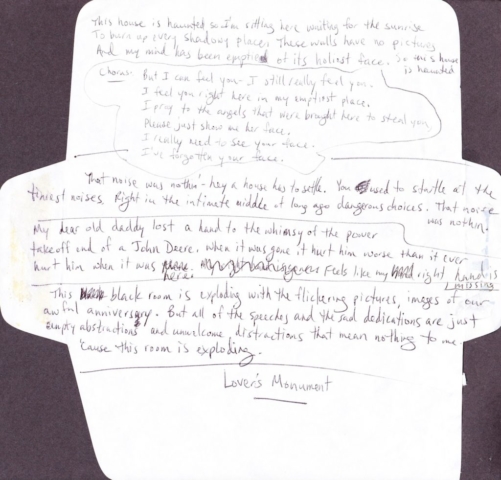 This house is haunted so I'm sitting here waiting for the sunrise
To burn up every shadowy place. These walls have no pictures
And my mind has been emptied of its holiest face. So this house
is haunted
Chorus: But I can feel you - I still really feel you.
I feel you right here in my emptiest place.
I pray to the angels that were brought here to steal you
Please just show me her face.
I really need to see your face.
I've forgotten your face.
That noise was nothin' - hey a house has to settle. You used to startle at the
tiniest noises. Right in the intimate middle of long ago dangerous choices. That noise
was nothin.
My dear old daddy lost a hand to the whimsy of the power
takeoff end of a John Deere. When it was gone it hurt him worse than it ever
hurt him when it was here. Feels like my right hand is
missing
This black room is exploding with the flickering pictures, images of our
awful anniversary. But all of the speeches and the sad dedications are just
empty abstractions and unwelcome distractions that mean nothing to me.
'Cause this room is exploding.
Lover's Monument